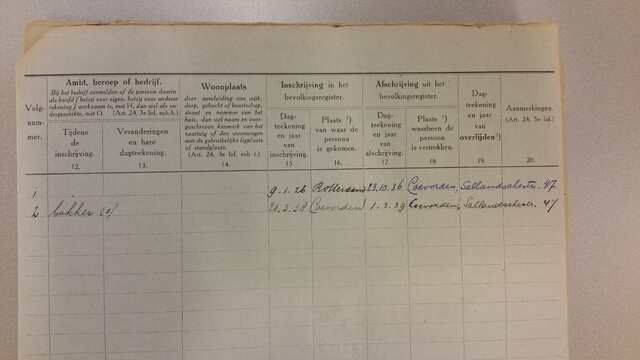 Volg-
num-
mer.
Ambt, beroep of bedrijf.
Bij het bedrijf vermelden of de persoon daarin
als hoofd (hetzij voor eigen, hetzij voor anderer
rekening) werkzaam is, met H, dan wel als on-
dergeschikte, met O. (Art. 24, 3e lid, sub h.)
Tijdens
de
inschrijving.
12.
Veranderingen
en hare
dagteekening.
13.
Woonplaats
door aanduiding van wijk,
dorp, gehucht of buurtschap,
straat en nummer van het
huis, dan wel naam en voor-
geschreven kenmerk van het
vaartuig of den woonwagen
met de gebruikelijke ligplaats
of standplaats.
(Art. 24, 3e lid, sub i.)
14.
Inschrijving in het
bevolkingsregister.
Dag-
teekening
en jaar
van
inschrijving.
15.
Plaats ¹)
van waar de
persoon
is gekomen.
16.
Afschrijving uit het
bevolkingsregister.
Dag-
teekening
en jaar
van
afschrijving.
17.
Plaats ¹)
waarheen de
persoon
is vertrokken.
18.
Dag-
teekening
en jaar
van
overlijden ²)
19.
Aanmerkingen.
(Art. 24, 5e lid.)
20.
1 9.1.26 Rotterdam 23.10.36 Coevorden, Sallandschestr. 47
2 bakker 28.3.38 Coevorden 1.3.39 Coevorden, Sallandschestr. 47